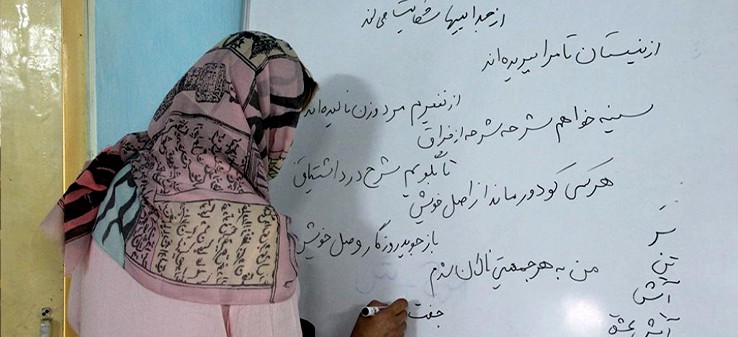 از جداییها شکایت می‌کند
از نیستان تا مرا ببریده‌اند
از نفیرم مرد و زن نالیده‌اند
سینه خواهم شرحه شرحه از فراق
تا بگویم شرح درد اشتیاق
هر کسی کو دور ماند از اصل خویش
باز جوید روزگار وصل خویش
من به هر جمعیتی نالان شدم
جفت
سر
تن
آتش
آتش عشق